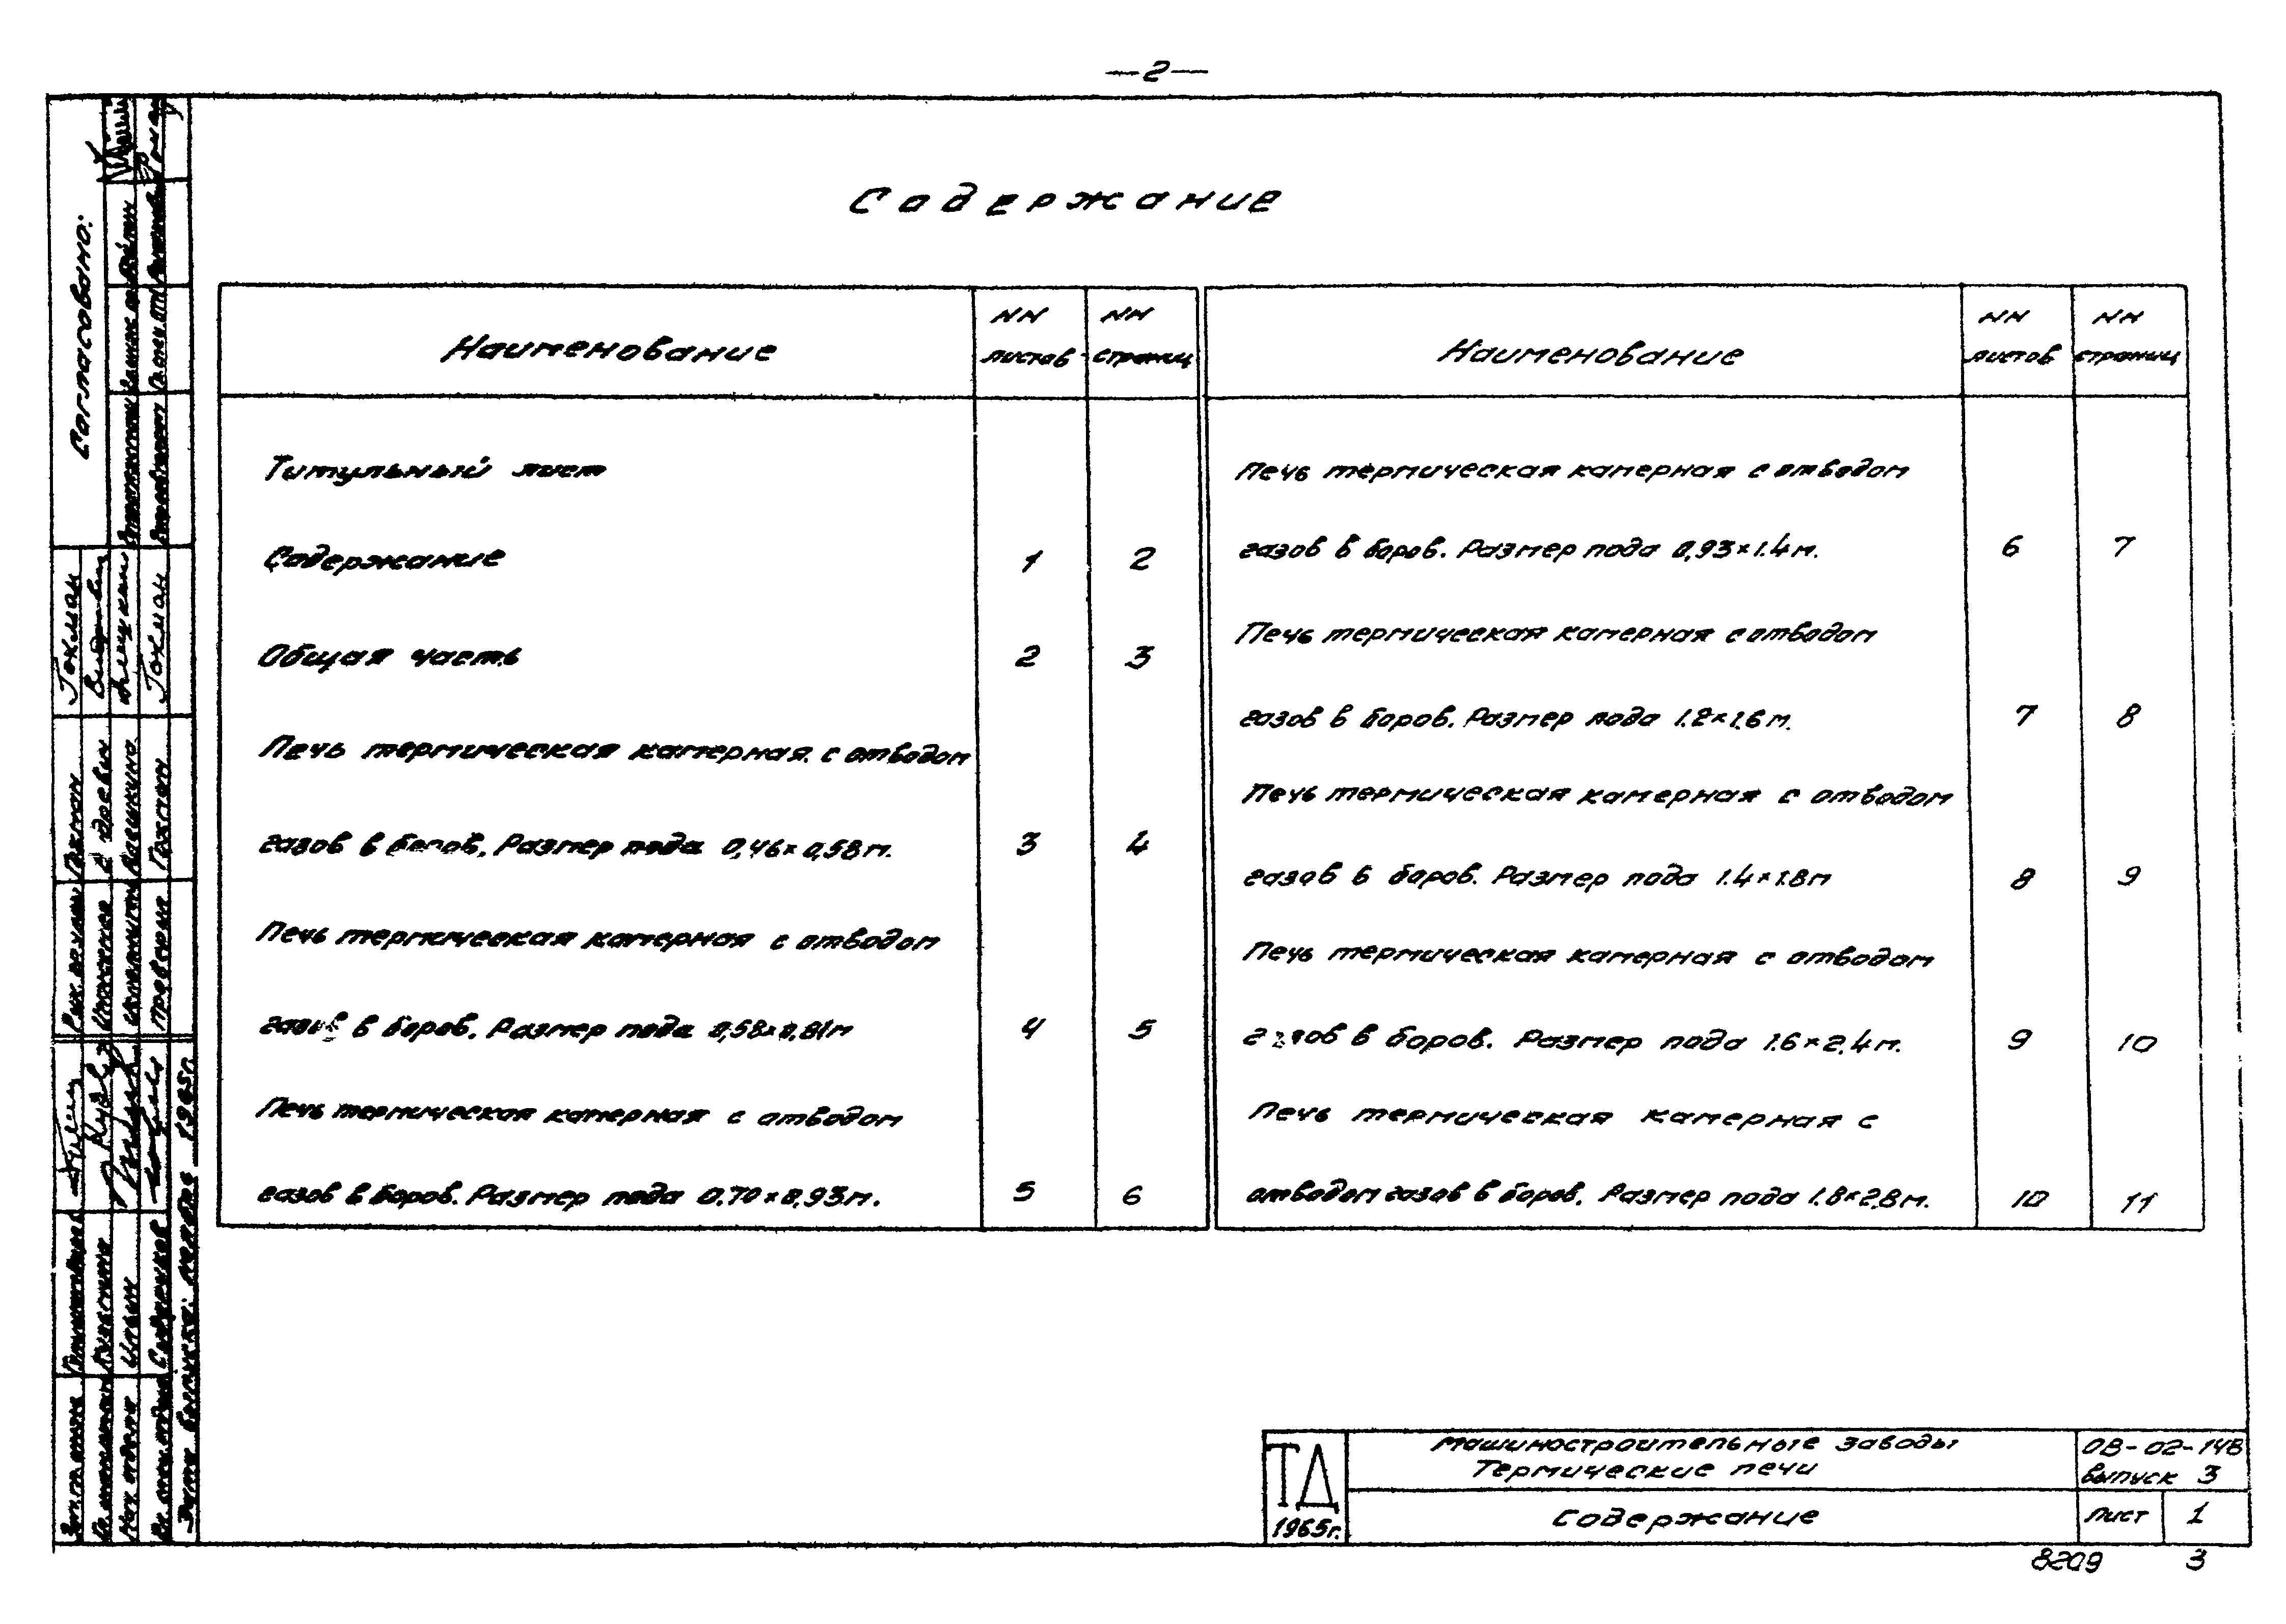 —2—
Содержание
Наименование
NN листов
NN страниц
Титульный лист
Содержание 1 2
Общая часть 2 3
Печь термическая камерная с отводом
газов в боров. Размер пода 0,46×0,58м. 3 4
Печь термическая камерная с отводом
газов в боров. Размер пода 0,58×0,81м 4 5
Печь термическая камерная с отводом
газов в боров. Размер пода 0.70×0,93м. 5 6
Наименование
NN листов
NN страниц
Печь термическая камерная с отводом
газов в боров. Размер пода 0,93×1.4м. 6 7
Печь термическая камерная с отводом
газов в боров. Размер пода 1.2×1.6м. 7 8
Печь термическая камерная с отводом
газов в боров. Размер пода 1.4×1.8м 8 9
Печь термическая камерная с отводом
газов в боров. Размер пода 1.6×2.4м. 9 10
Печь термическая камерная с
отводом газов в боров. Размер пода 1.8×2.8м. 10 11
Согласовано:
Гохман
Проверил
Нач. отдела
Ильин
Дата выпуска: 1965г.
ТД
1965г.
Машиностроительные заводы
Термические печи
Содержание
ОВ-02-148
выпуск 3
Лист 1
8209 3